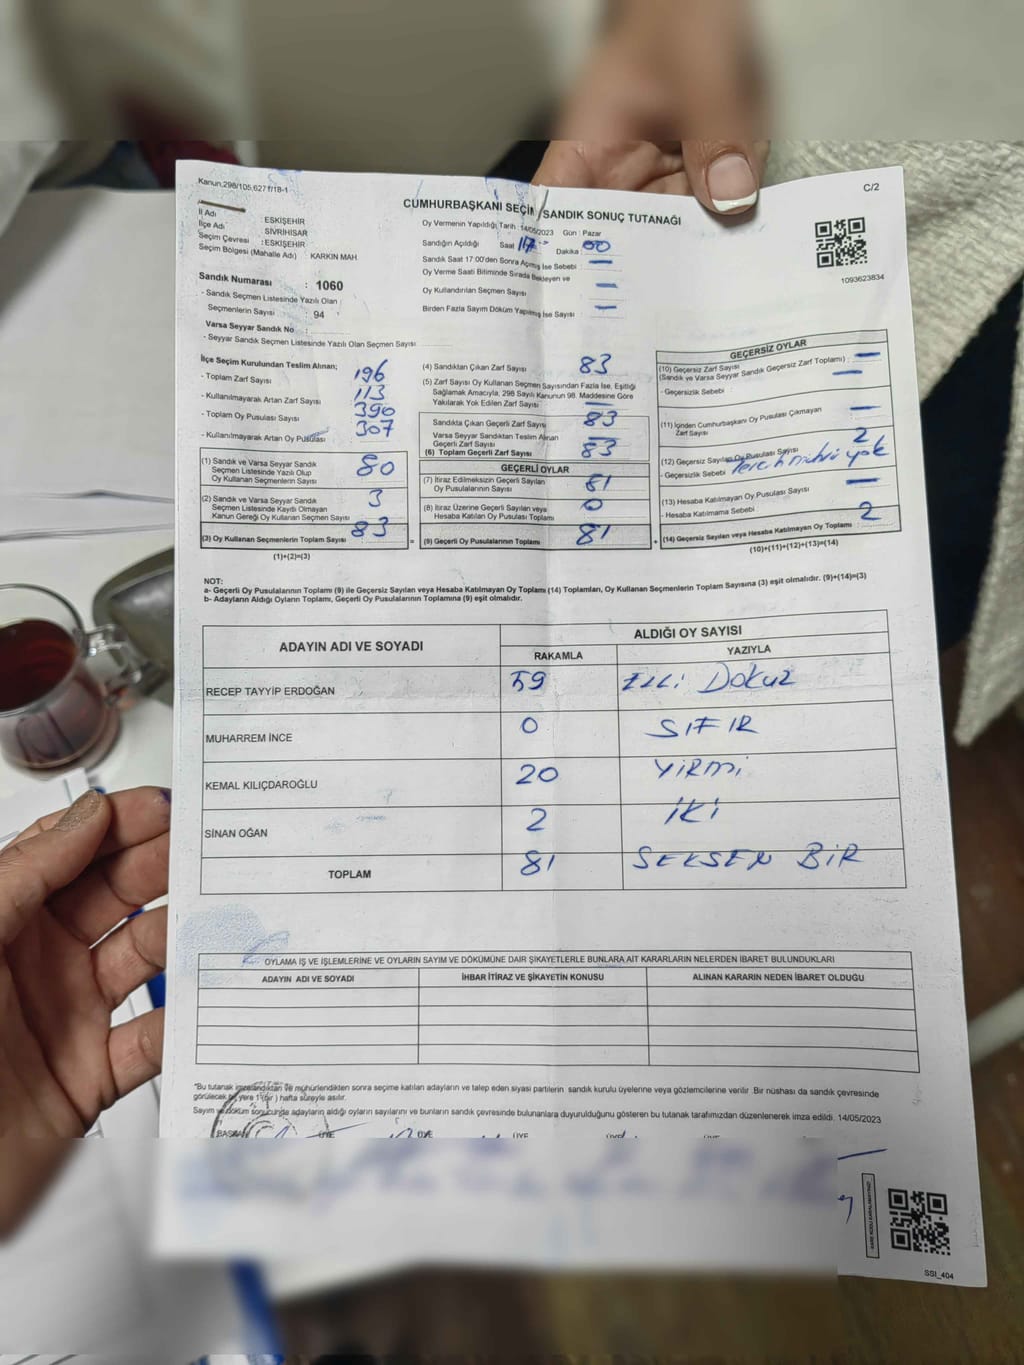 Kanun,298/105,627 f/18-1
C/2
CUMHURBAŞKANI SEÇİM SANDIK SONUÇ TUTANAĞI
İl Adı : ESKİŞEHİR
İlçe Adı : SİVRİHİSAR
Seçim Çevresi : ESKİŞEHİR
Seçim Bölgesi (Mahalle Adı) : KARKIN MAH.
Sandık Numarası : 1060
- Sandık Seçmen Listesinde Yazılı Olan
Seçmenlerin Sayısı : 94
Varsa Seyyar Sandık No :
- Seyyar Sandık Seçmen Listesinde Yazılı Olan Seçmen Sayısı
Oy Vermenin Yapıldığı Tarih : 14/05/2023 Gün : Pazar
Sandığın Açıldığı Saat 17 Dakika 00
Sandık Saat 17:00'den Sonra Açılmış İse Sebebi —
Oy Verme Saati Bitiminde Sırada Bekleyen ve
Oy Kullandırılan Seçmen Sayısı —
Birden Fazla Sayım Döküm Yapılmış İse Sayısı —
1093623834
İlçe Seçim Kurulundan Teslim Alınan;
- Toplam Zarf Sayısı 196
- Kullanılmayarak Artan Zarf Sayısı 113
- Toplam Oy Pusulası Sayısı 390
- Kullanılmayarak Artan Oy Pusulası 307
(1) Sandık ve Varsa Seyyar Sandık
Seçmen Listesinde Yazılı Olup
Oy Kullanan Seçmenlerin Sayısı 80
(2) Sandık ve Varsa Seyyar Sandık
Seçmen Listesinde Kayıtlı Olmayan
Kanun Gereği Oy Kullanan Seçmen Sayısı 3
(3) Oy Kullanan Seçmenlerin Toplam Sayısı 83 =
(1)+(2)=(3)
(4) Sandıktan Çıkan Zarf Sayısı 83
(5) Zarf Sayısı Oy Kullanan Seçmen Sayısından Fazla İse, Eşitliği
Sağlamak Amacıyla, 298 Sayılı Kanunun 98. Maddesine Göre
Yakılarak Yok Edilen Zarf Sayısı —
Sandıkta Çıkan Geçerli Zarf Sayısı 83
Varsa Seyyar Sandıktan Teslim Alınan
Geçerli Zarf Sayısı —
(6) Toplam Geçerli Zarf Sayısı 83
GEÇERLİ OYLAR
(7) İtiraz Edilmeksizin Geçerli Sayılan
Oy Pusulalarının Sayısı 81
(8) İtiraz Üzerine Geçerli Sayılan veya
Hesaba Katılan Oy Pusulası Toplamı 0
(9) Geçerli Oy Pusulalarının Toplamı 81 +
GEÇERSİZ OYLAR
(10) Geçersiz Zarf Sayısı
(Sandık ve Varsa Seyyar Sandık Geçersiz Zarf Toplamı) : —
- Geçersizlik Sebebi : —
(11) İçinden Cumhurbaşkanı Oy Pusulası Çıkmayan
Zarf Sayısı —
(12) Geçersiz Sayılan Oy Pusulası Sayısı 2
- Geçersizlik Sebebi Tercih mührü yok
(13) Hesaba Katılmayan Oy Pusulası Sayısı —
- Hesaba Katılmama Sebebi
(14) Geçersiz Sayılan veya Hesaba Katılmayan Oy Toplamı : 2
(10)+(11)+(12)+(13)=(14)
NOT:
a- Geçerli Oy Pusulalarının Toplamı (9) ile Geçersiz Sayılan veya Hesaba Katılmayan Oy Toplamı (14) Toplamları, Oy Kullanan Seçmenlerin Toplam Sayısına (3) eşit olmalıdır. (9)+(14)=(3)
b- Adayların Aldığı Oyların Toplamı, Geçerli Oy Pusulalarının Toplamına (9) eşit olmalıdır.
ADAYIN ADI VE SOYADI ALDIĞI OY SAYISI
RAKAMLA YAZIYLA
RECEP TAYYİP ERDOĞAN 59 ELLİ DOKUZ
MUHARREM İNCE 0 SIFIR
KEMAL KILIÇDAROĞLU 20 YİRMİ
SİNAN OĞAN 2 İKİ
TOPLAM 81 SEKSEN BİR
OYLAMA İŞ VE İŞLEMLERİNE VE OYLARIN SAYIM VE DÖKÜMÜNE DAİR ŞİKAYETLERLE BUNLARA AİT KARARLARIN NELERDEN İBARET BULUNDUKLARI
ADAYIN ADI VE SOYADI İHBAR İTİRAZ VE ŞİKAYETİN KONUSU ALINAN KARARIN NEDEN İBARET OLDUĞU
"Bu tutanak imzalandıktan ve mühürlendikten sonra seçime katılan adayların ve talep eden siyasi partilerin sandık kurulu üyelerine veya gözlemcilerine verilir. Bir nüshası da sandık çevresinde
görülecek bir yere 1 (bir) hafta süreyle asılır.
Sayım ve döküm sonucunda adayların aldığı oyların sayılarını ve bunların sandık çevresinde bulunanlara duyurulduğunu gösteren bu tutanak tarafımızdan düzenlenerek imza edildi. 14/05/2023
BAŞKAN ÜYE ÜYE ÜYE ÜYE ÜYE
SSI_404